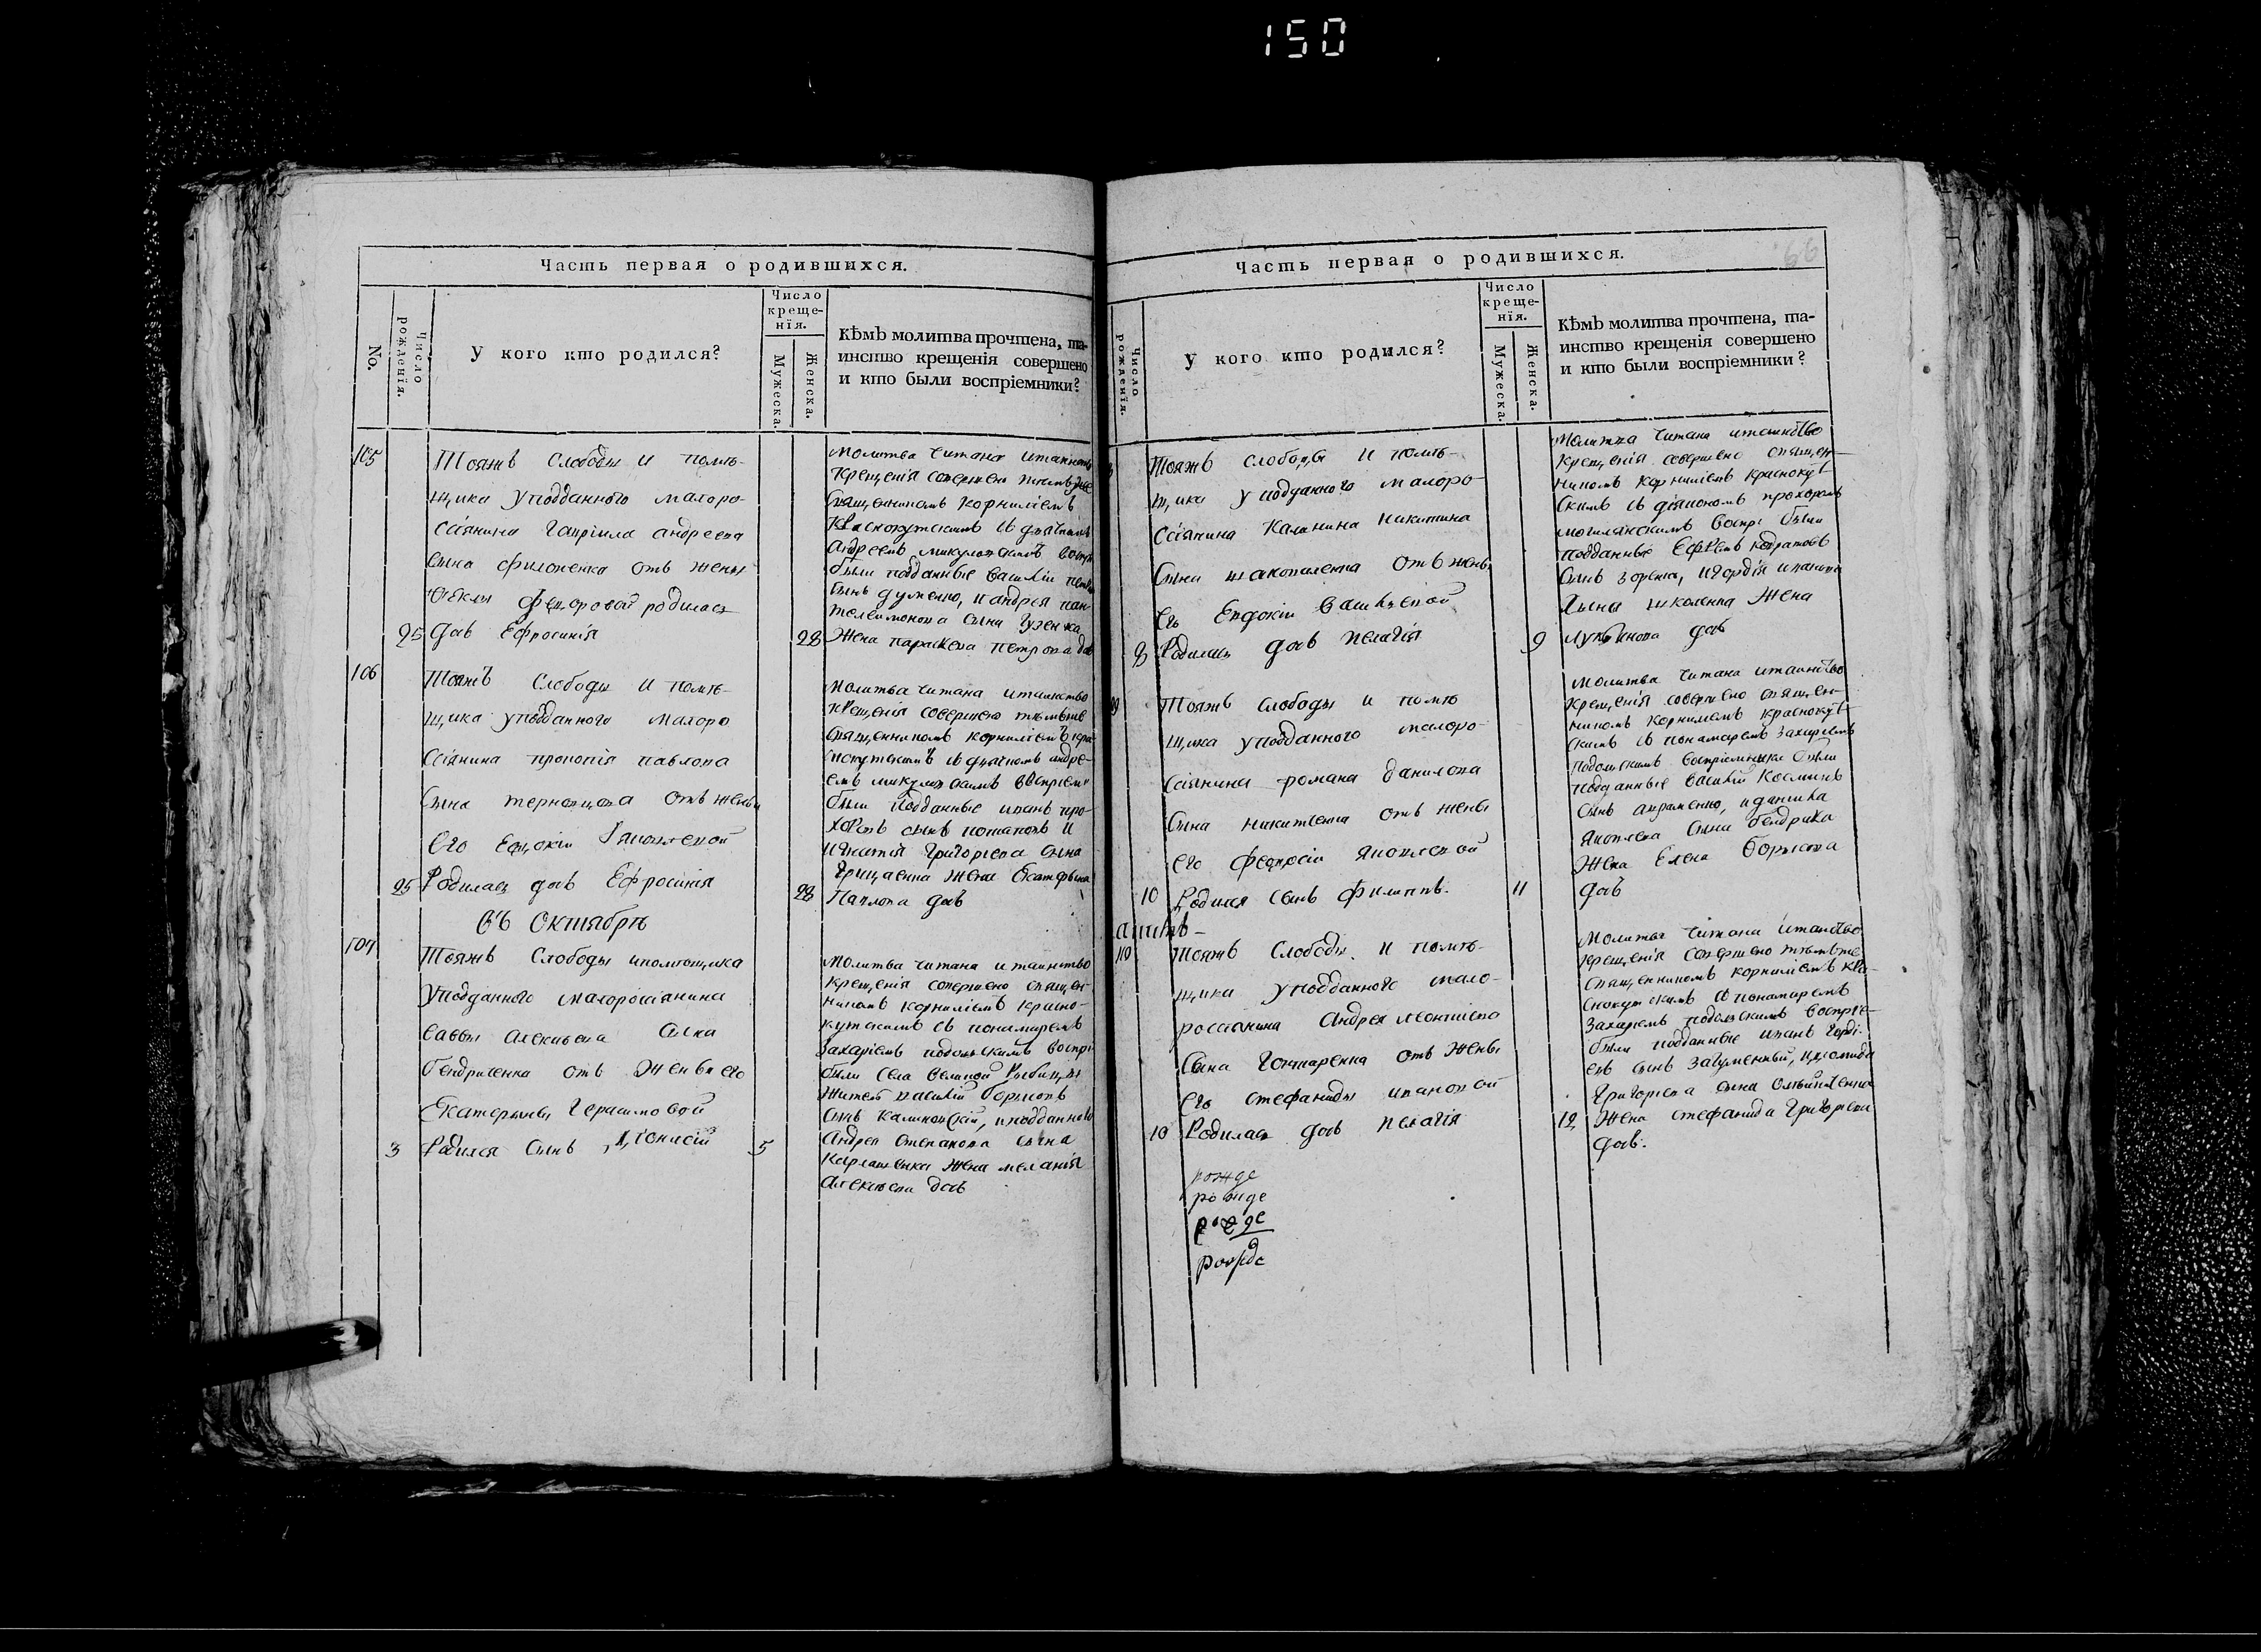 150
Часть первая о родившихся.
No.
Число рожденїя.
У кого кто родился?
Число креще-нїя.
Мужеска.
Женска.
КѢмЪ молитва прочтена, та-
инство крещенія совершено
и кто были воспріемники?
105
Тояжъ слободы и помѣ-
щика уподданного малоро-
ссіянина Гавріила андреева
сына филоненка отъ жены
Феклы федоровой родилась
25 дочь Ефросинія
28
молитва читана итаинство
крещенія совершено тѣмъже
священникомъ корниліемъ
Краснокутскимъ съ дьячкомъ
андреемъ
были подданные василій
сынъ думенко, и андрея пан-
телеимонова сына
жена параскева петрова дочь
106
Тояжъ слободы и помѣ-
щика уподданного малоро
ссіянина прокопія павлова
сына отъ жены
его Евдокіи Яковлевой
25 Родилась дочь Ефросинія
28
молитва читана итаинство
крещенія совершено тѣмъже
священникомъ корниліемъ кра-
снокутскимъ съ дьячкомъ андре-
емъ
были подданные иванъ про-
хоровъ сынъ потаповъ и
игнатія григоріева сына
грицаенка жена Екатерина
Павлова дочь
въ Октябрѣ
107
Тояжъ слободы ипомѣщика
уподданного малороссіянина
саввы алексѣева сына
бендриченка отъ жены его
Екатерины Герасимовой
3 Родился сынъ Діонисій
5
Молитва читана итаинство
крещенія совершено священ-
никомъ корниліемъ красно-
кутскимъ съ пономаремъ
Захаріемъ подольскимъ воспрі
были села великой рыбицы
житель василій борисовъ
сынъ калиновскій, иподданного
Андрея степанова сына
жена меланія
алексѣева дочь
Часть первая о родившихся.
66
Число рожденїя.
У кого кто родился?
Число креще-нїя.
Мужеска.
Женска.
КѢмЪ молитва прочтена, та-
инство крещенія совершено
и кто были воспріемники?
Тояжъ слободы и помѣ-
щика уподданного малоро-
ссіянина Калинина Никитина
сына отъ жены
его Евдокіи васильевой
8 Родилась дочь пелагія
9
Молитва читана итаинство
крещенія совершено священ-
никомъ корниліемъ краснокут-
скимъ съ діакономъ прохоромъ
могилянскимъ воспрі были
подданные
сынъ зоренко, игордія иванова
сына жена
Лукьянова дочь
Тояжъ слободы и помѣ
щика уподданного малоро-
ссіянина романа данилова
сына никитенка отъ жены
его федосіи яковлевой
10 Родился сынъ филиппъ.
11
молитва читана итаинство
крещенія совершено священ-
никомъ корниліемъ краснокут-
скимъ съ пономаремъ захаріемъ
подольскимъ воспріемники были
подданные василій Косминъ
сынъ авраменко, иданила
яковлева сына бендрика
жена Елена борисова
дочь
110
Тояжъ слободы и помѣ-
щика уподданного мало-
россіянина Андрея леонтіева
сына Гончаренка отъ жены
его стефаниды ивановой
10 Родилась дочь пелагія
12
молитва читана итаинство
крещенія совершено тѣмъже
священникомъ корниліемъ кра-
снокутскимъ съ пономаремъ
Захаріемъ подольскимъ воспріе-
были подданные иванъ горді-
евъ сынъ Загуменный, идіомида
григорьева сына
жена стефанида григорьева
дочь.
рожде
рожде
рожде
рожде